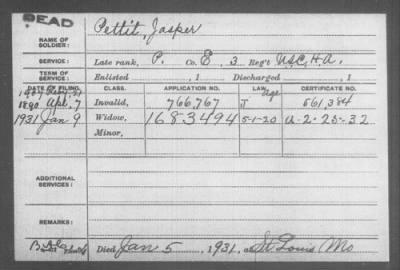 DEAD
NAME OF SOLDIER: Pettit, Jasper
SERVICE: Late rank, P. Co. E, 3 Reg't U.S.C.H.A.
TERM OF SERVICE: Enlisted , 1 Discharged , 1
DATE OF FILING. CLASS. APPLICATION NO. LAW. CERTIFICATE NO.
Age
1890 Apl. 7 Invalid, 766,767 J 561,384
1931 Jan 9 Widow, 1683494 5-1-20 A-2-25-32
Minor,
ADDITIONAL SERVICES:
REMARKS:
Died Jan 5, 1931, at St. Louis Mo